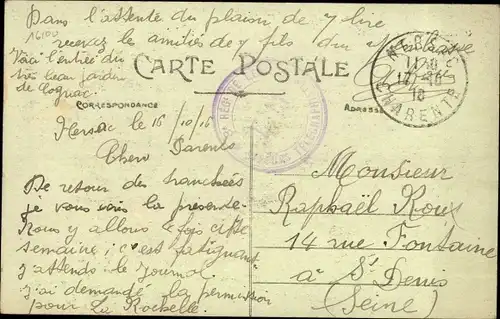 Dans l'attente du plaisir de y lire
recevez les amitiés de y fils
16100
Voici l'entrée du
très beau jardin
de Cognac.
CARTE POSTALE
CORRESPONDANCE
ADRESSE
CHARENTE
Mersac le 16/10/16
Chers Parents
De retour des tranchées
je vous écris la présente
Nous y allons 4 fois cette
semaine; c'est fatiguant
J'attends le journal.
J'ai demandé la permission
pour La Rochelle.
Monsieur
Raphaël Roux
14 rue Fontaine
à St Denis
(Seine)